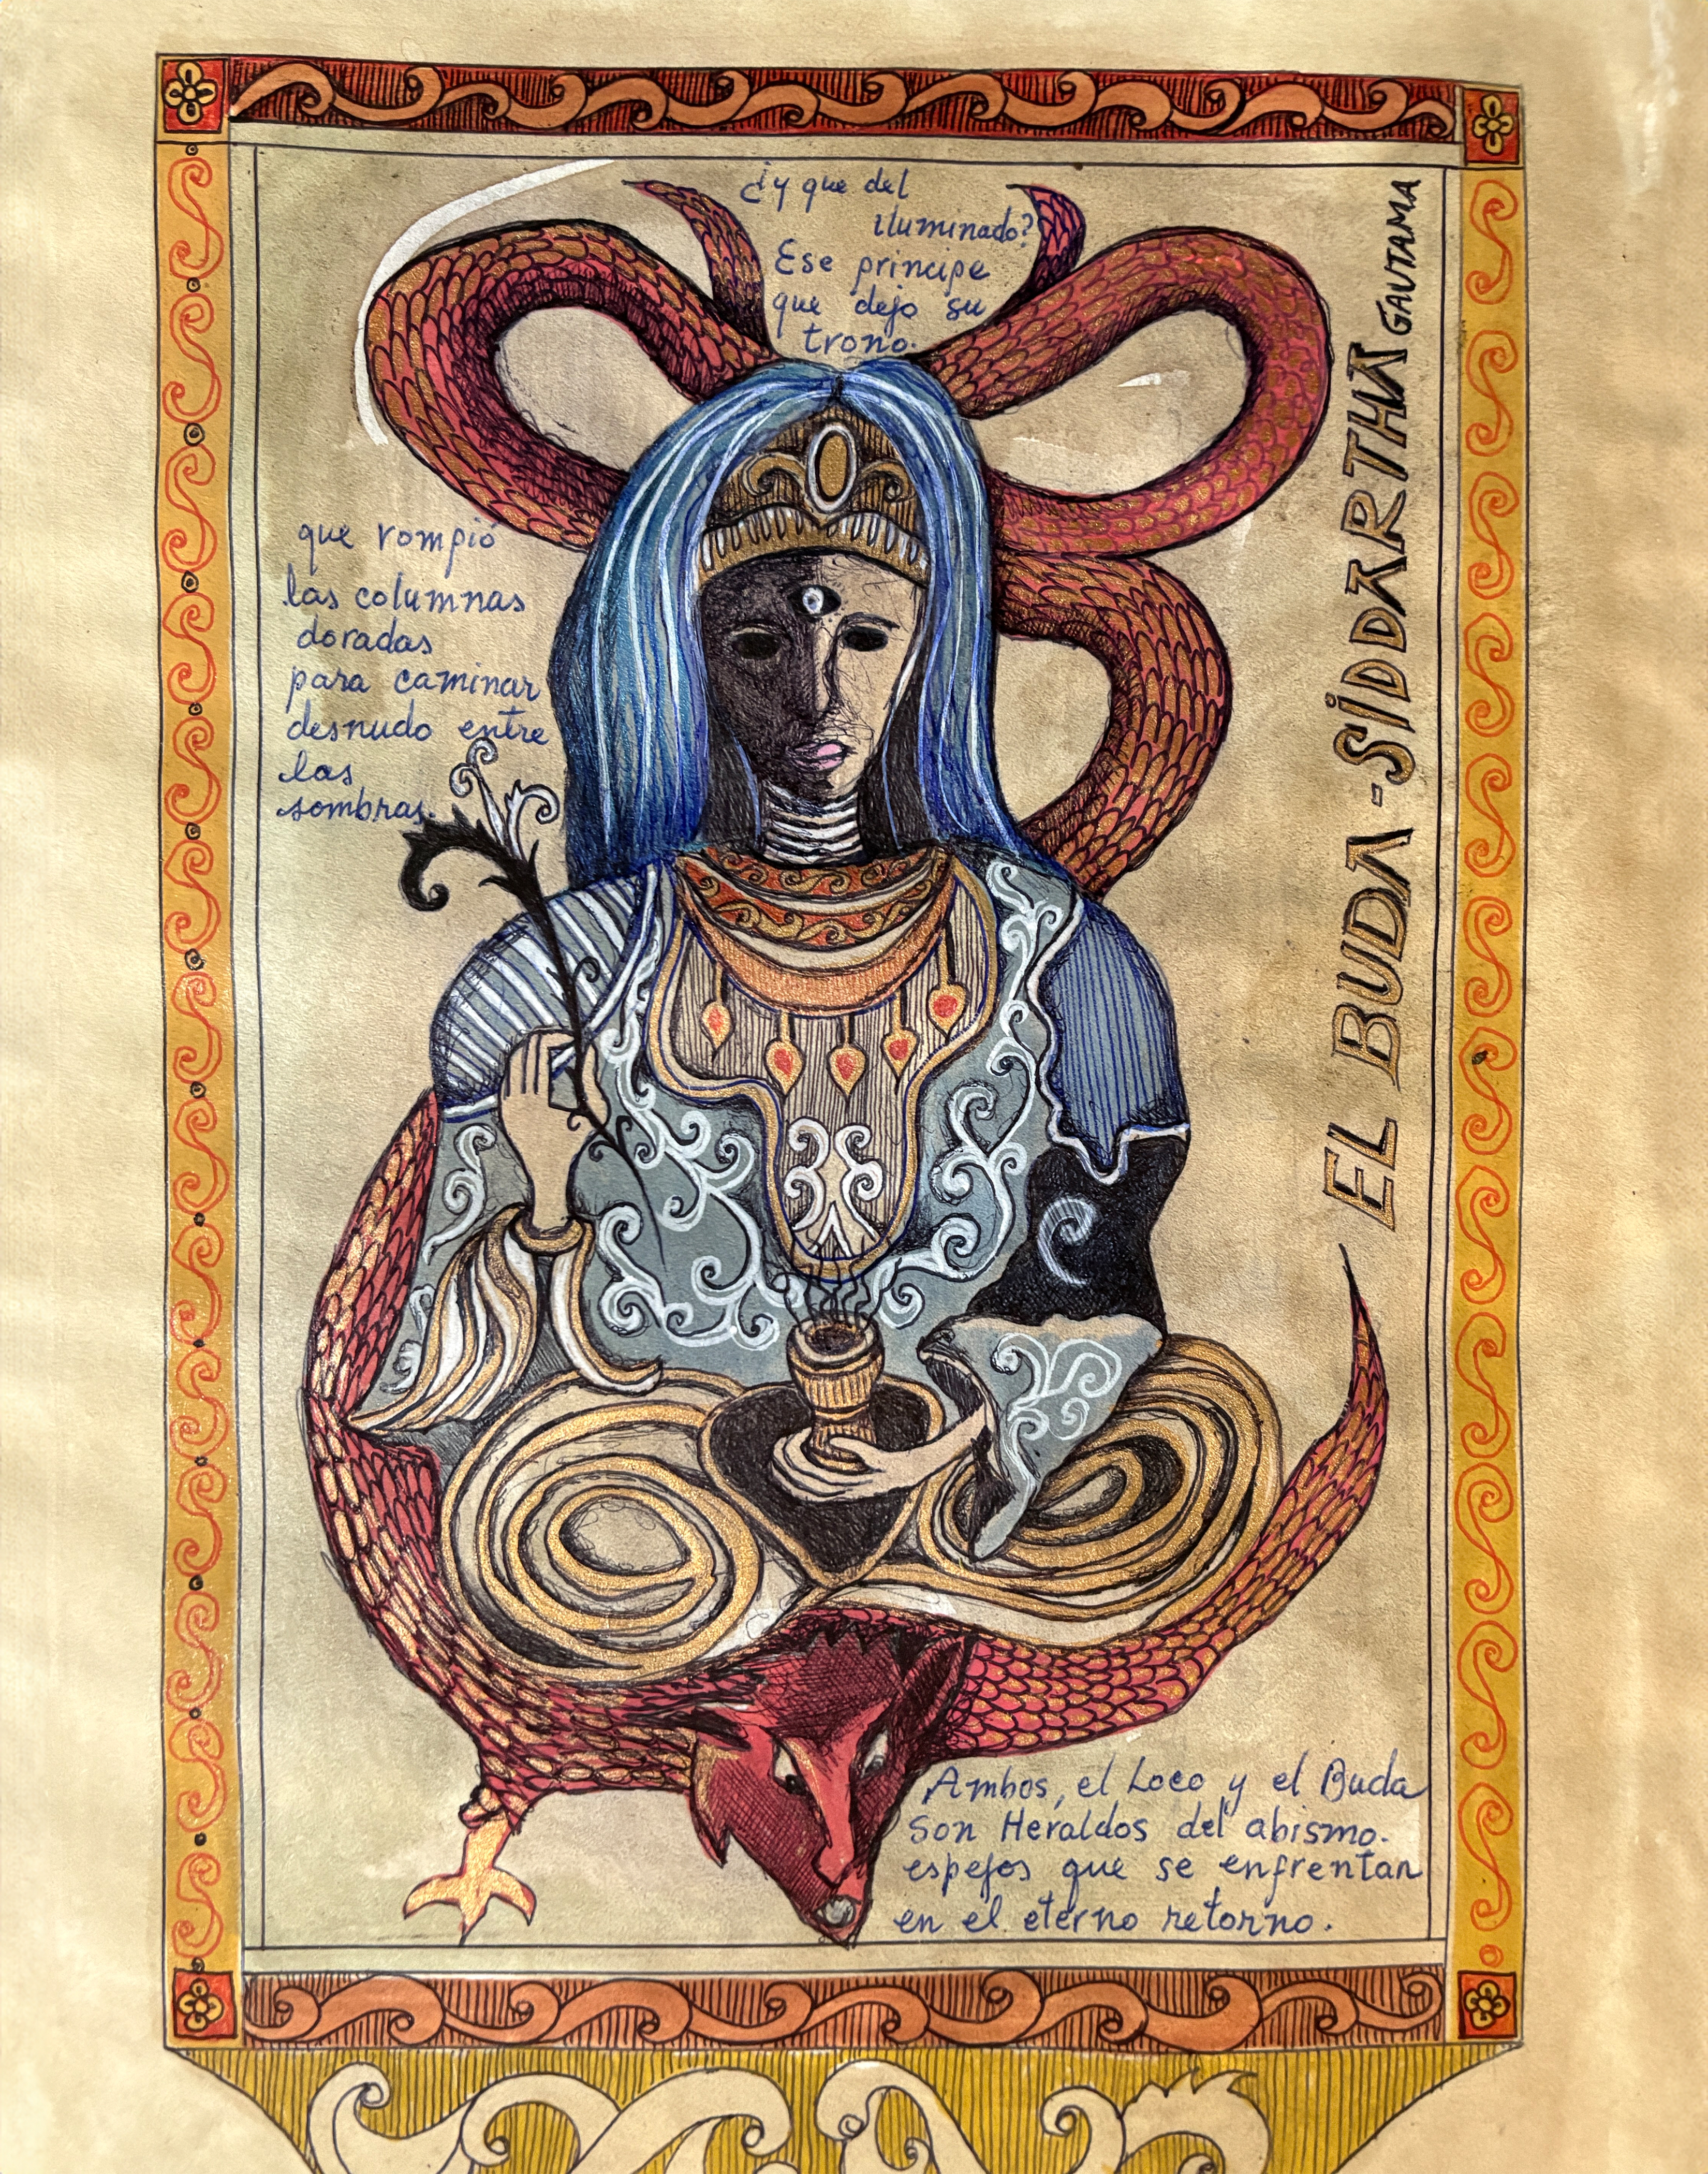 ¿y que del
iluminado?
Ese principe
que dejo su
trono.
que rompió
las columnas
doradas
para caminar
desnudo entre
las
sombras.
EL BUDA - SIDDARTHA GAUTAMA
Ambos, el Loco y el Buda
Son Heraldos del abismo.
espejos que se enfrentan
en el eterno retorno.